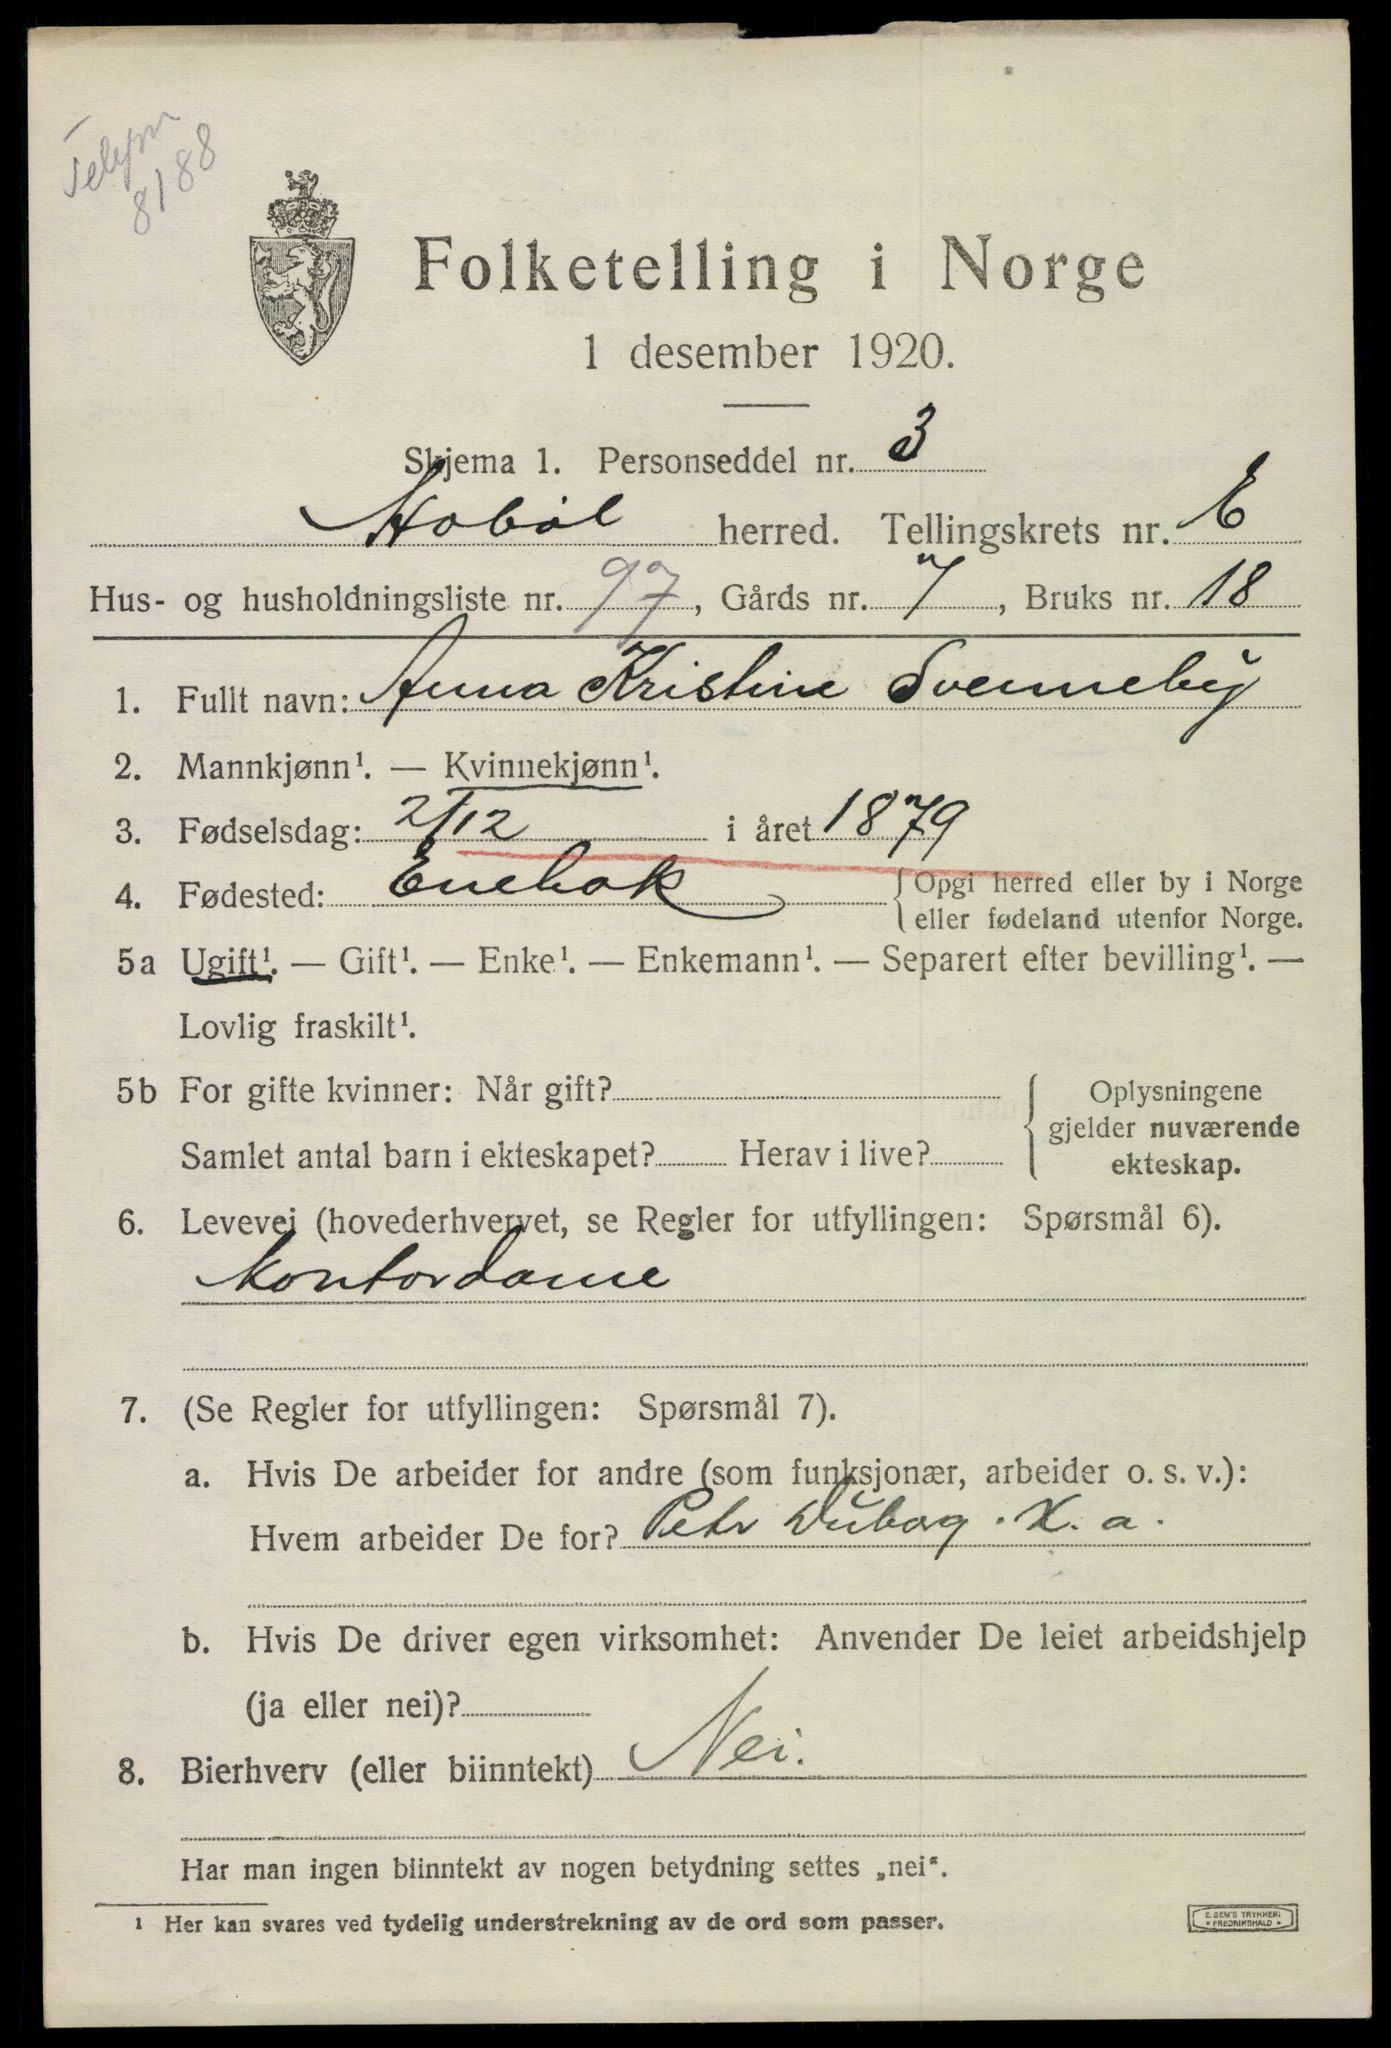 8188
Folketelling i Norge
1 desember 1920.
Skjema 1. Personseddel nr. 3
Hobøl herred. Tellingskrets nr. 6
Hus- og husholdningsliste nr. 97, Gårds nr. 7, Bruks nr. 18
1. Fullt navn: Anna Kristine Svenneby
2. Mannkjønn¹. — Kvinnekjønn¹.
3. Fødselsdag: 2/12 i året 1879
4. Fødested: Enebak {Opgi herred eller by i Norge
eller fødeland utenfor Norge.
5a Ugift¹. — Gift¹. — Enke¹. — Enkemann¹. — Separert efter bevilling¹. —
Lovlig fraskilt¹.
5b For gifte kvinner: Når gift? Oplysningene
gjelder nuværende
Samlet antal barn i ekteskapet? Herav i live? ekteskap.
6. Levevei (hovederhvervet, se Regler for utfyllingen: Spørsmål 6).
Kontordame
7. (Se Regler for utfyllingen: Spørsmål 7).
a. Hvis De arbeider for andre (som funksjonær, arbeider o. s. v.):
Hvem arbeider De for? Petr
b. Hvis De driver egen virksomhet: Anvender De leiet arbeidshjelp
(ja eller nei)?
8. Bierhverv (eller biinntekt) Nei.
Har man ingen biinntekt av nogen betydning settes „nei“.
¹ Her kan svares ved tydelig understrekning av de ord som passer.
E. SEM'S TRYKKERI
• FREDRIKSHALD •